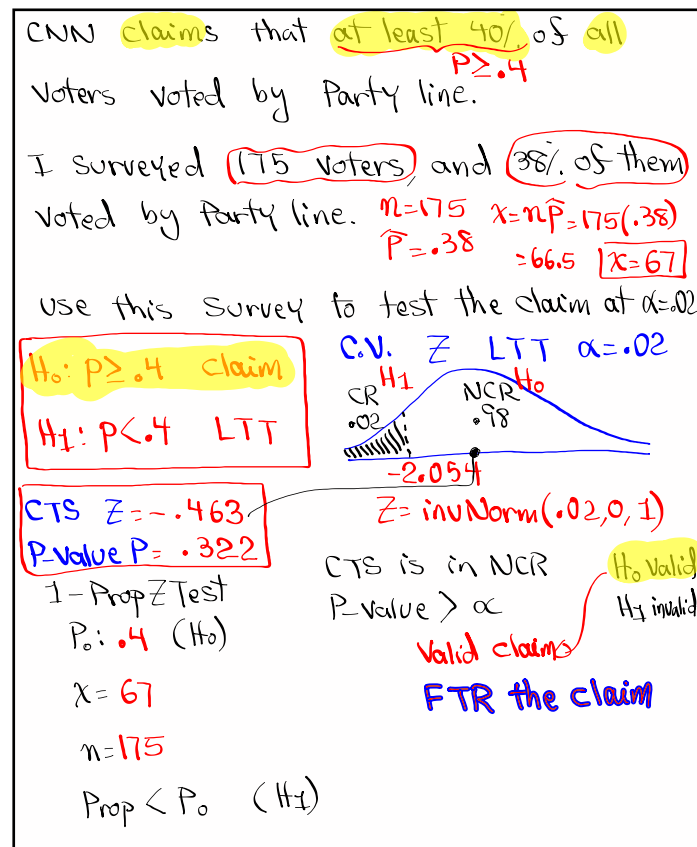 CNN claims that at least 40% of all
P≥.4
Voters voted by Party line.
I surveyed 175 voters, and 38% of them
voted by Party line. n=175 x=np̂=175(.38)
p̂=.38 =66.5 x=67
use this survey to test the claim at α=.02
H₀: P≥.4 claim
H₁: P<.4 LTT
C.V. Z LTT α=.02
CR H₁ NCR H₀
.02 .98
-2.054
Z=invNorm(.02,0,1)
CTS Z=-.463
P-value P=.322
1-PropZTest
P₀: .4 (H₀)
x=67
n=175
Prop<P₀ (H₁)
CTS is in NCR H₀ valid
P-value > α H₁ invalid
Valid claim
FTR the claim